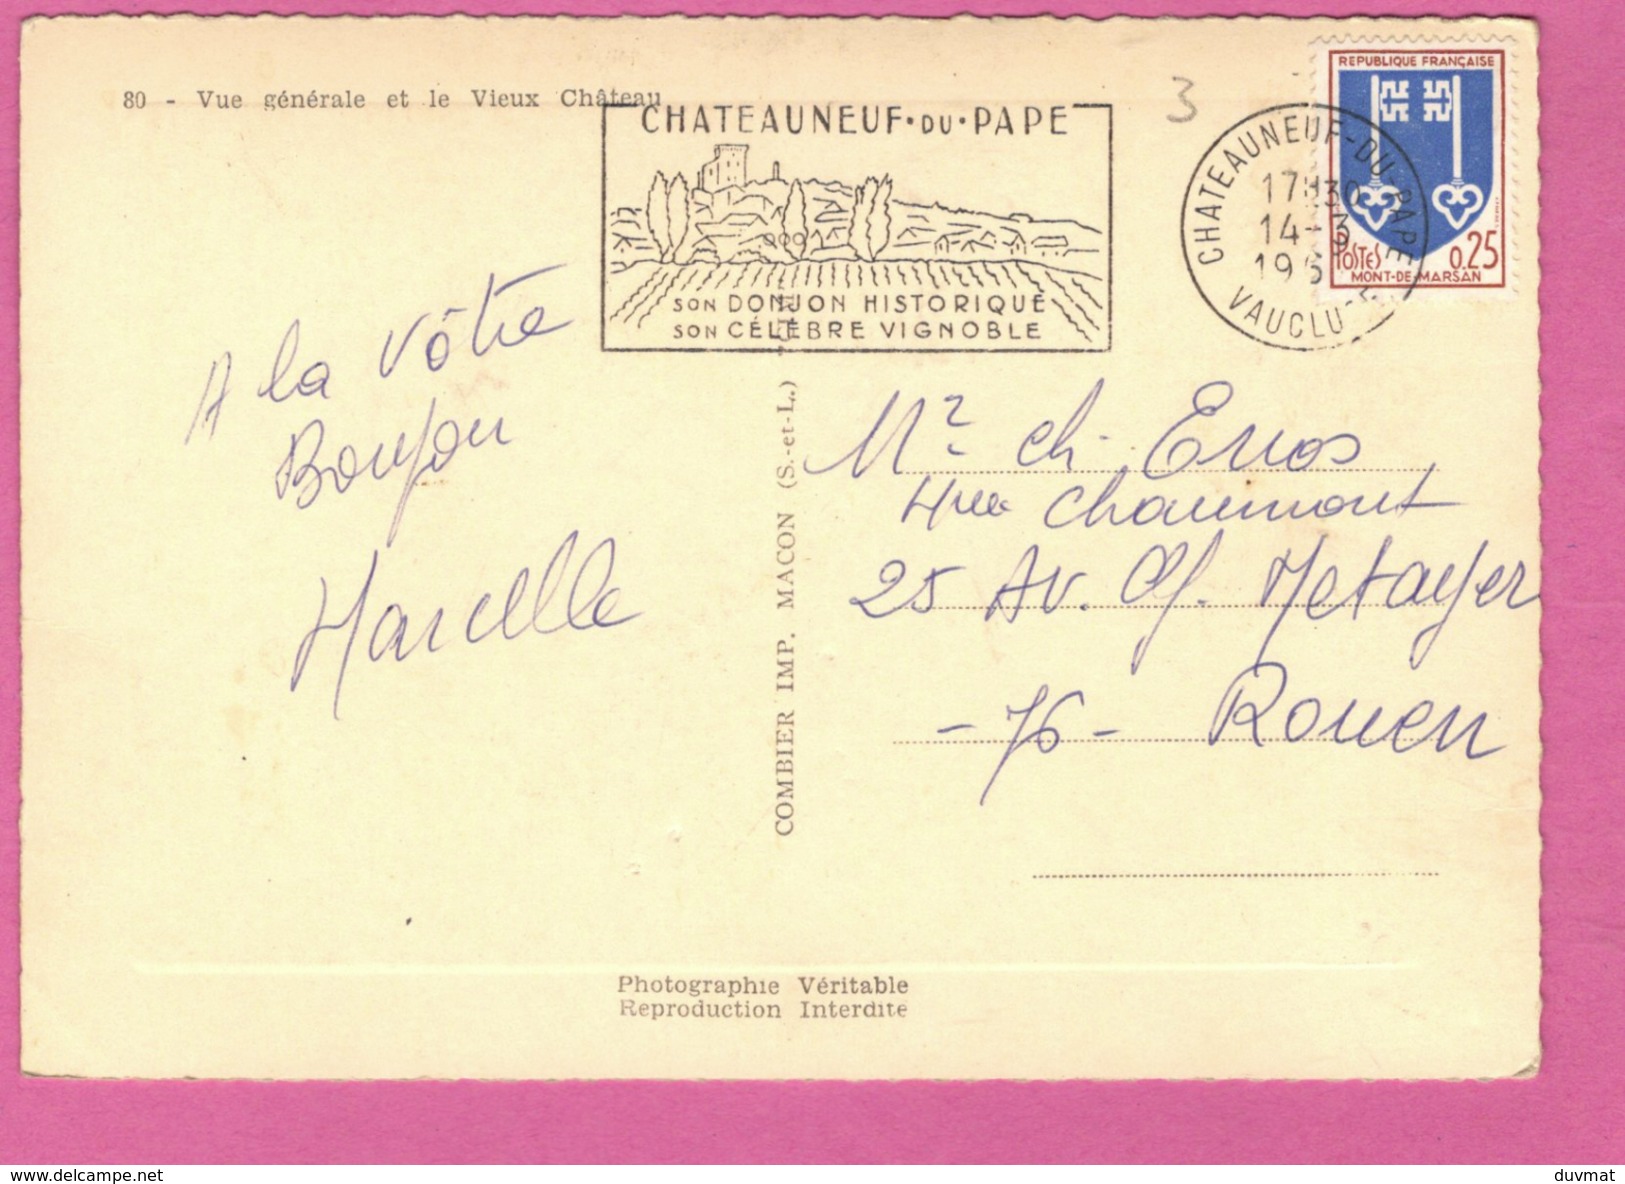 80 - Vue générale et le Vieux Château
CHATEAUNEUF·DU·PAPE
SON DONJON HISTORIQUE
SON CÉLÈBRE VIGNOBLE
3
CHATEAUNEUF-DU-PAPE
17H30
14-3
196
VAUCLUSE
REPUBLIQUE FRANÇAISE
POSTES 0.25
MONT-DE-MARSAN
A la vôtre
Marcelle
COMBIER IMP. MACON (S.-et-L.)
Mr Ch. Erros
Chaumont
25 Av. Metayer
-76- Rouen
Photographie Véritable
Reproduction Interdite
www.delcampe.net
duvmat